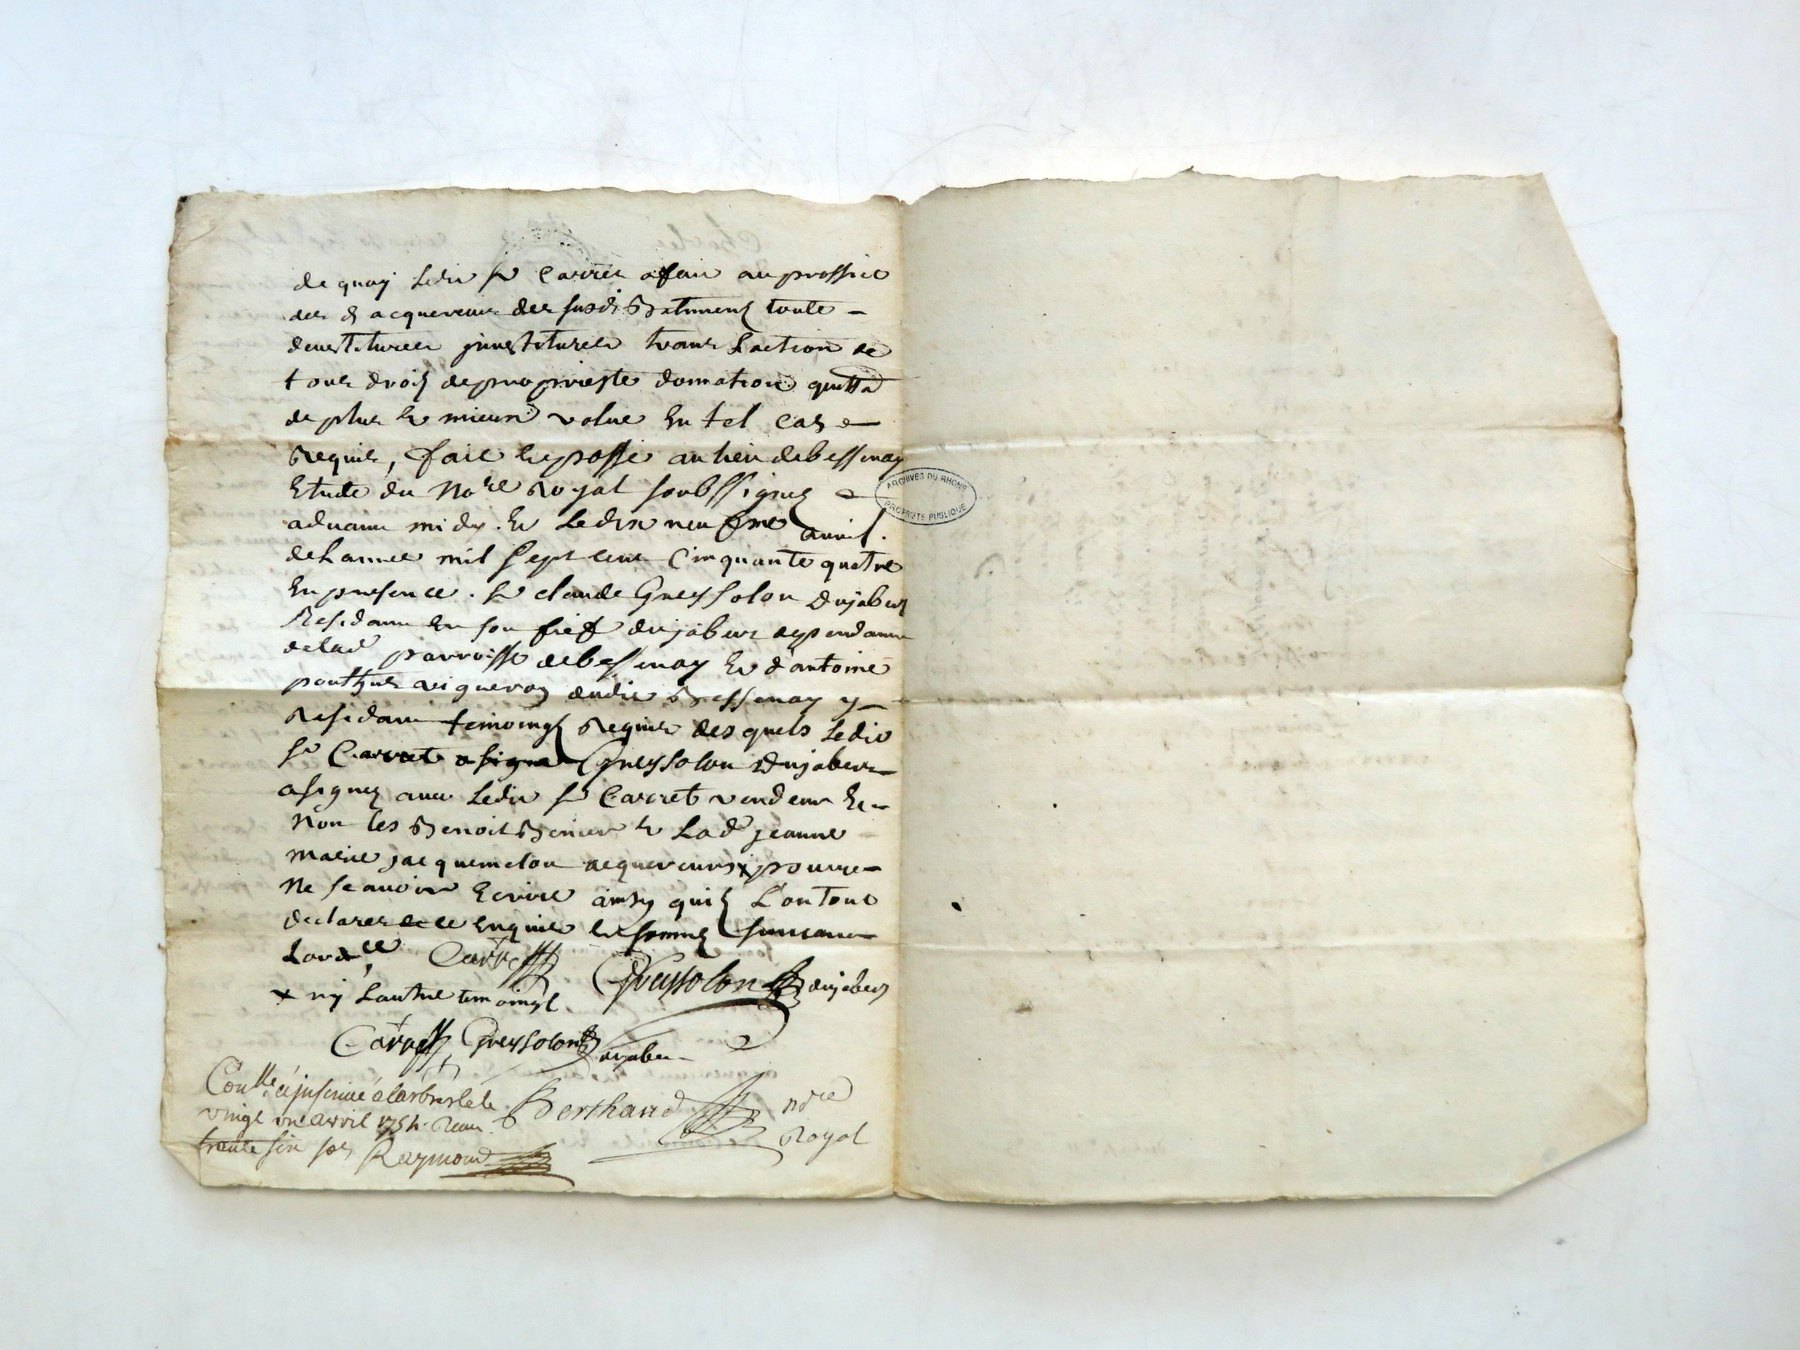 de quoy ledit sr Carret a fait au proffict
des d acquereurs des susdt Batiment toute
devestitures investitures translaction de
tous droits de proprieste domation quitta
de plus et mieux value En tel cas
Requis, fait et passé au lieu de bessenay
Etude du No.re Royal soubssigné
advant midy. Et le dix neufme avril.
de L'annee mil Sept cent Cinquante quatre
En presence. sr claude Greysolon Dujabert
Residant En son fief dujabert dependant
de lad parroisse de bessenay Et d'antoine
vigneron dudit Bessenay y
Residant temoings Requis des quels ledit
sr Carret a signé Greysolon Dujabert
a signez avec Ledit sr Carret vendeur Et
Non les Benoit et Lad jeanne
marie jacquemeton acquereurs x pour
Ne scavoir Ecrire ainsy quils L'ont
declarez de ce Enquis et sommez suivant
Lord.ce Carret Greysolon dujabert
x ny L'autre temoingt
Carret Greysolon dujabert
Con.lle et insinué a larbresle le
vingt un avril 1754. Reçu
trente six sols Raymond
Berthaud no.re
Royal
ARCHIVES DU RHONE
PROPRIETE PUBLIQUE